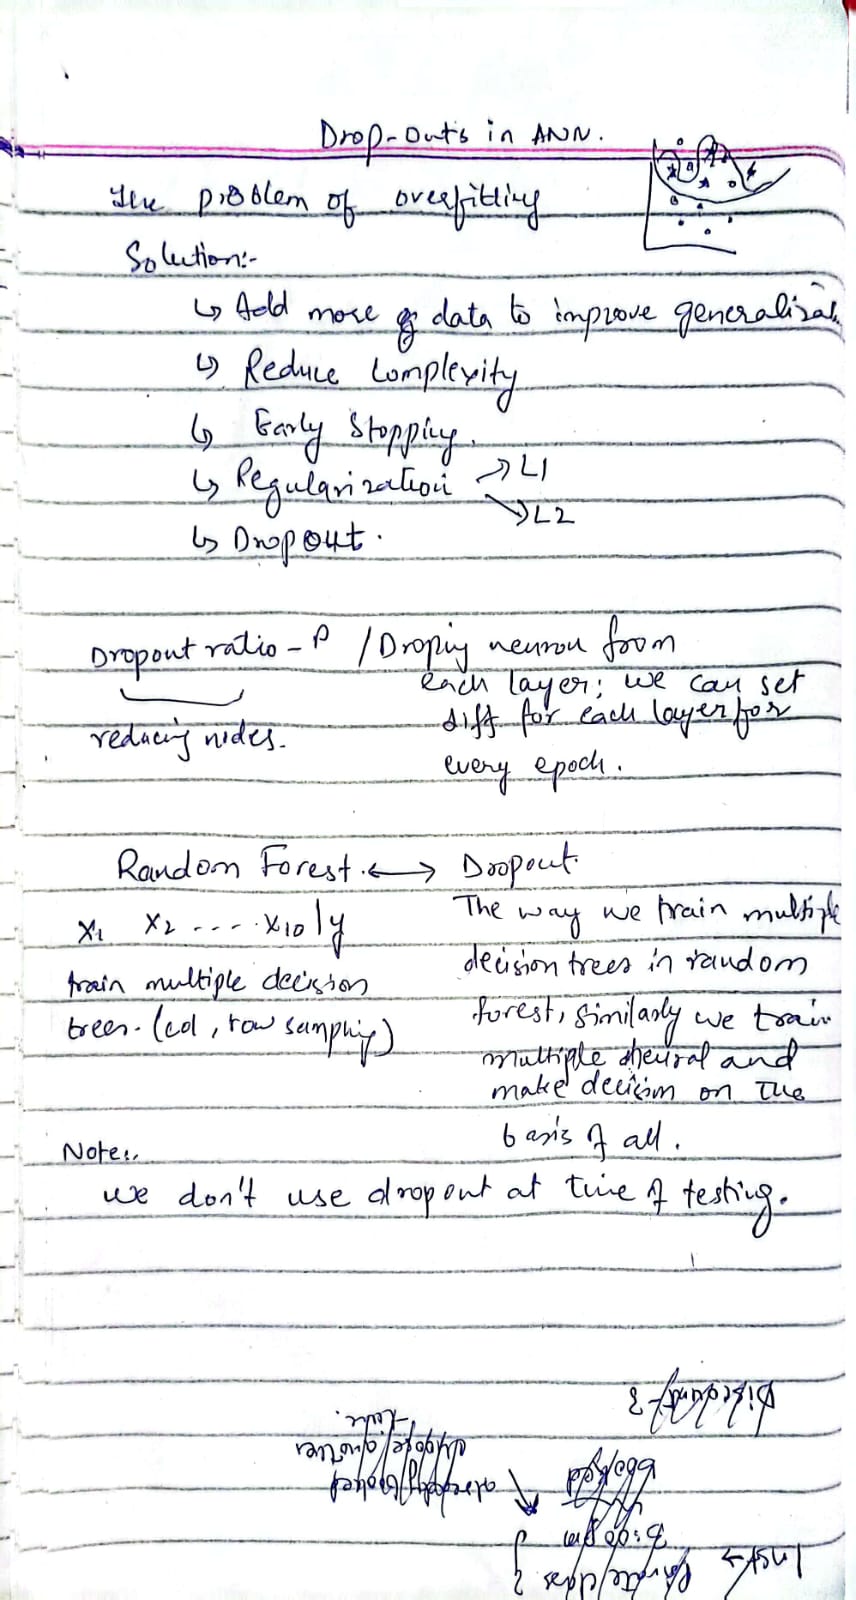 Drop-outs in ANN.
The problem of overfitting
Solution:-
↳ Add more of data to improve generalizat
↳ Reduce Complexity
↳ Early Stopping.
↳ Regularization → L1
→ L2
↳ Dropout.
Dropout ratio - P / Droping neuron from
each layer; we can set
reducing nodes.
diff for each layer for
every epoch.
Random Forest. ⟷ Dropout.
X1 X2 ---- X10 | y
train multiple decision
trees. (col, row sampling)
The way we train multiple
decision trees in random
forest, similarly we train
multiple neural and
make decision on the
basis of all.
Note:.
we don't use dropout at time of testing.
Discount - ?
booked
already booked
choose another
time.
5:00 pm
Private class ?
Inst →